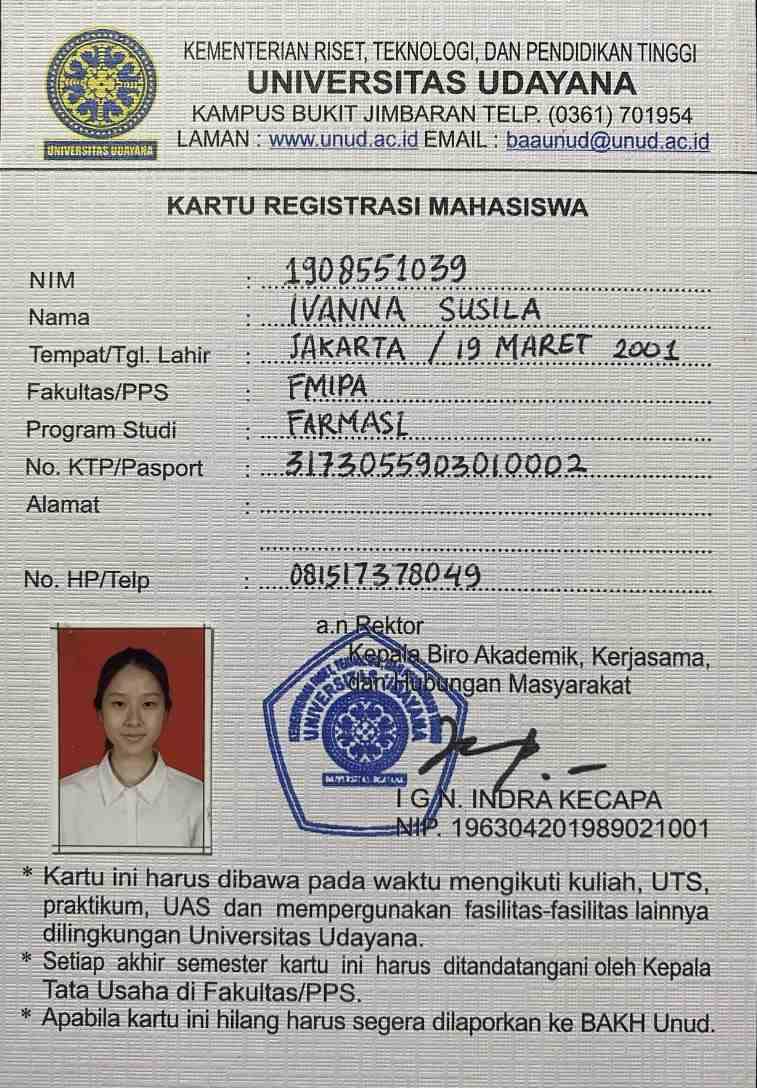 KEMENTERIAN RISET, TEKNOLOGI, DAN PENDIDIKAN TINGGI
UNIVERSITAS UDAYANA
KAMPUS BUKIT JIMBARAN TELP. (0361) 701954
LAMAN : www.unud.ac.id EMAIL : baaunud@unud.ac.id
UNIVERSITAS UDAYANA
KARTU REGISTRASI MAHASISWA
NIM : 1908551039
Nama : IVANNA SUSILA
Tempat/Tgl. Lahir : JAKARTA / 19 MARET 2001
Fakultas/PPS : FMIPA
Program Studi : FARMASI
No. KTP/Pasport : 3173055903010002
Alamat :
No. HP/Telp : 081517378049
a.n Rektor
Kepala Biro Akademik, Kerjasama,
dan Hubungan Masyarakat
UNIVERSITAS UDAYANA
I G.N. INDRA KECAPA
NIP. 196304201989021001
* Kartu ini harus dibawa pada waktu mengikuti kuliah, UTS,
praktikum, UAS dan mempergunakan fasilitas-fasilitas lainnya
dilingkungan Universitas Udayana.
* Setiap akhir semester kartu ini harus ditandatangani oleh Kepala
Tata Usaha di Fakultas/PPS.
* Apabila kartu ini hilang harus segera dilaporkan ke BAKH Unud.